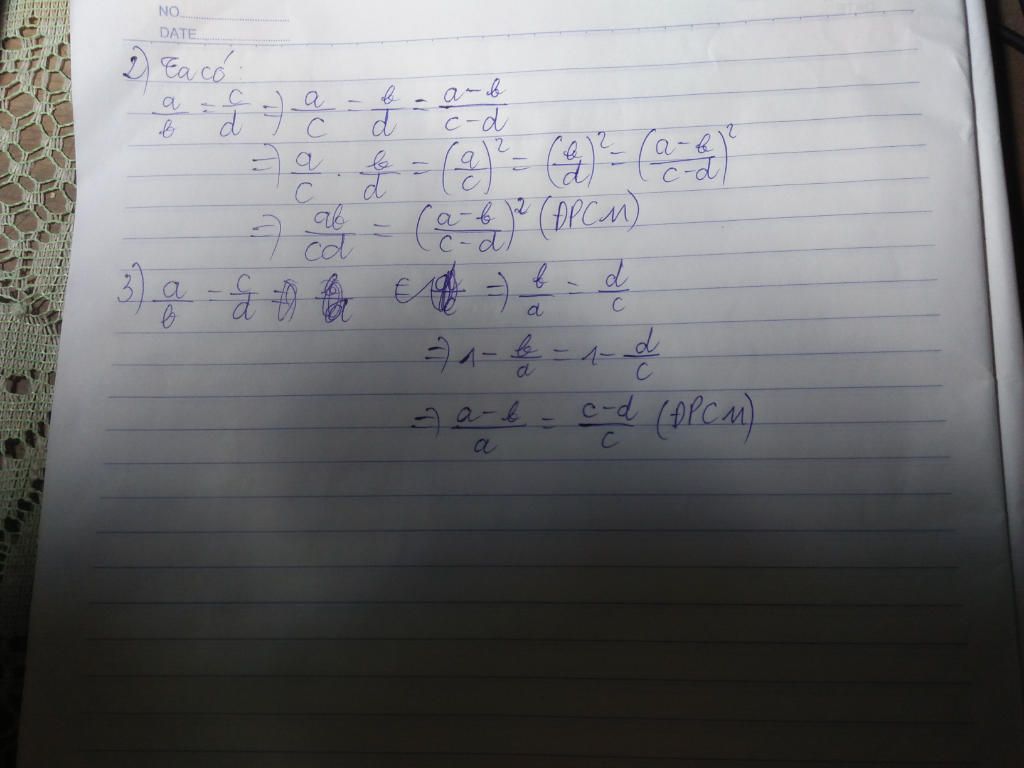 NO.
DATE
2) Ta có:
a/b = c/d => a/c = b/d = a-b/c-d
=> a/c . b/d = (a/c)² = (b/d)² = (a-b/c-d)²
=> ab/cd = (a-b/c-d)² (ĐPCM)
3) a/b = c/d => b/a = d/c
=> 1 - b/a = 1 - d/c
=> a-b/a = c-d/c (ĐPCM)